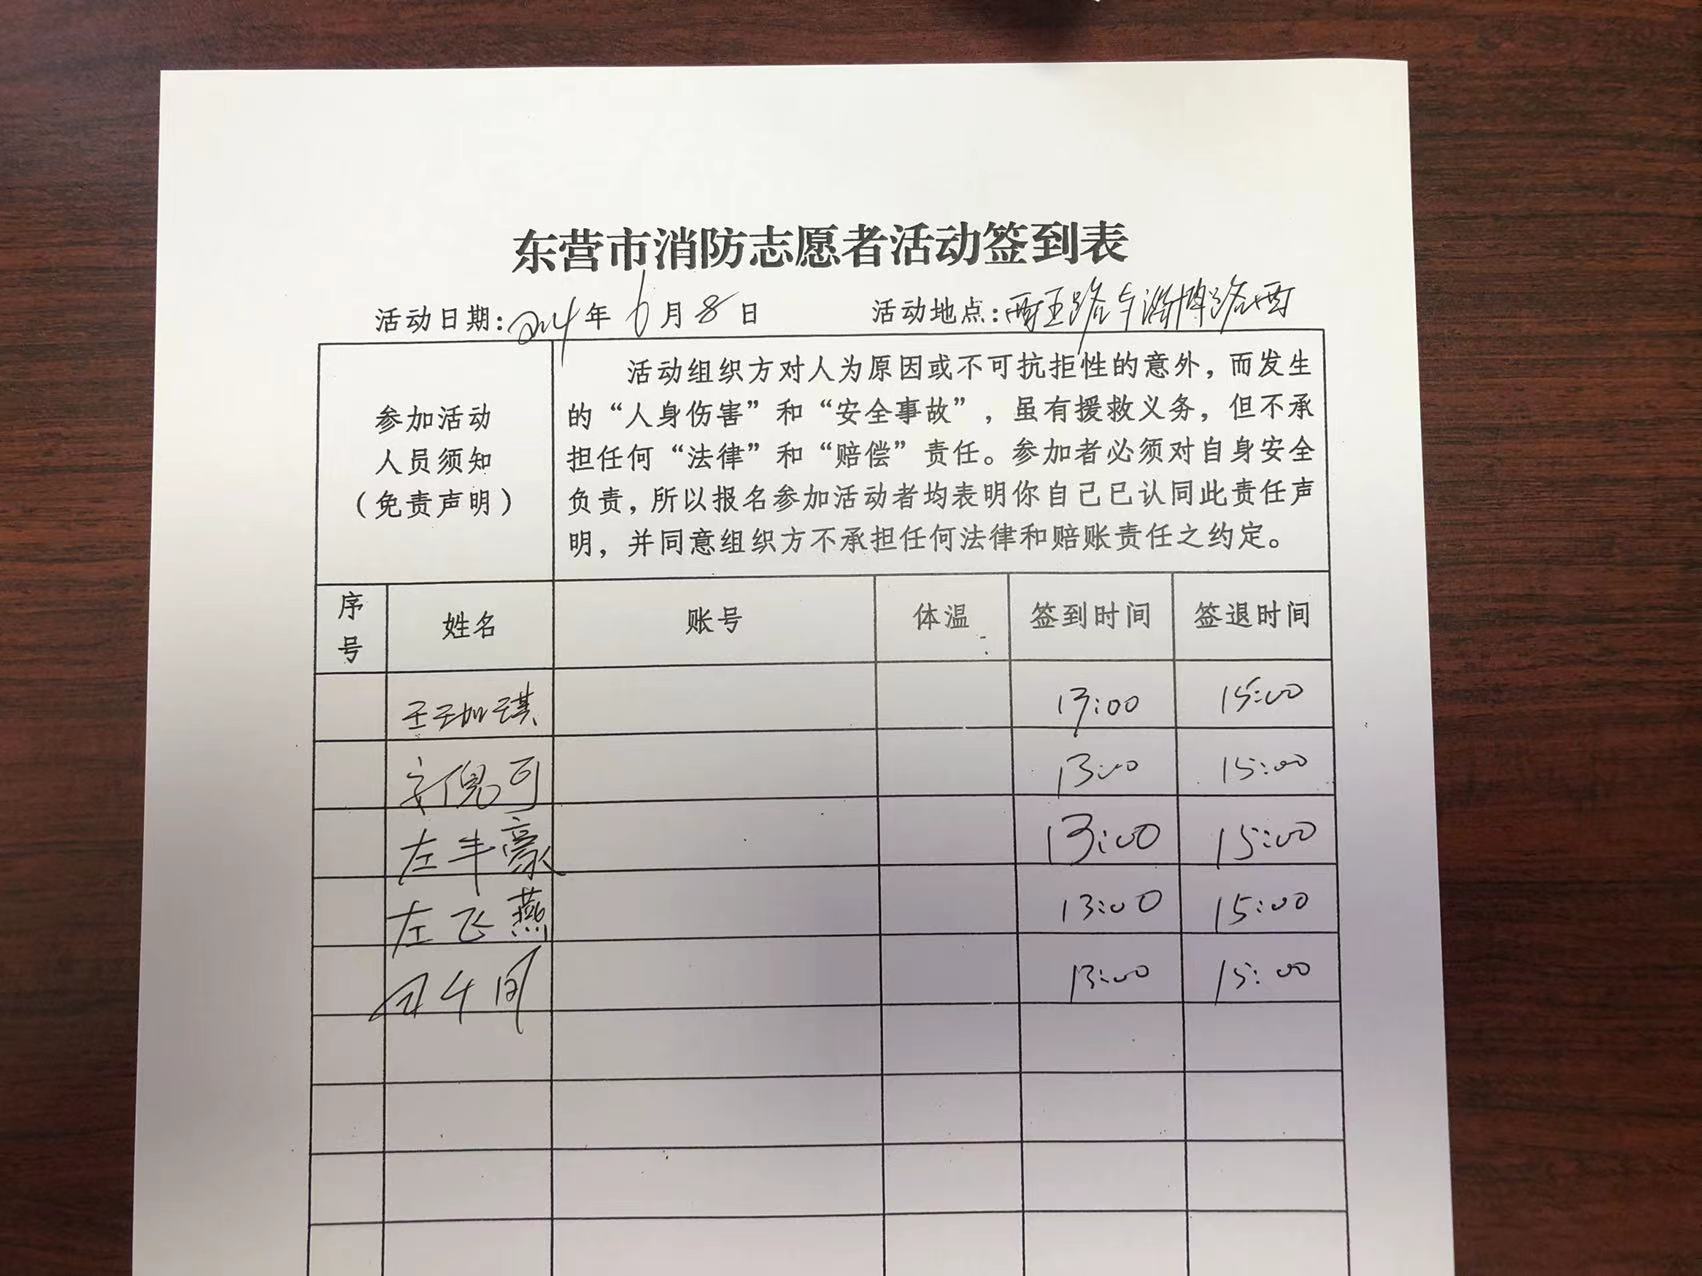 东营市消防志愿者活动签到表
活动日期:2024年6月8日 活动地点:西五路与淄博路西
参加活动
人员须知
（免责声明）
活动组织方对人为原因或不可抗拒性的意外，而发生
的“人身伤害”和“安全事故”，虽有援救义务，但不承
担任何“法律”和“赔偿”责任。参加者必须对自身安全
负责，所以报名参加活动者均表明你自己已认同此责任声
明，并同意组织方不承担任何法律和赔账责任之约定。
序号 姓名 账号 体温 签到时间 签退时间
13:00 15:00
13:00 15:00
左丰豪 13:00 15:00
左飞燕 13:00 15:00
13:00 15:00